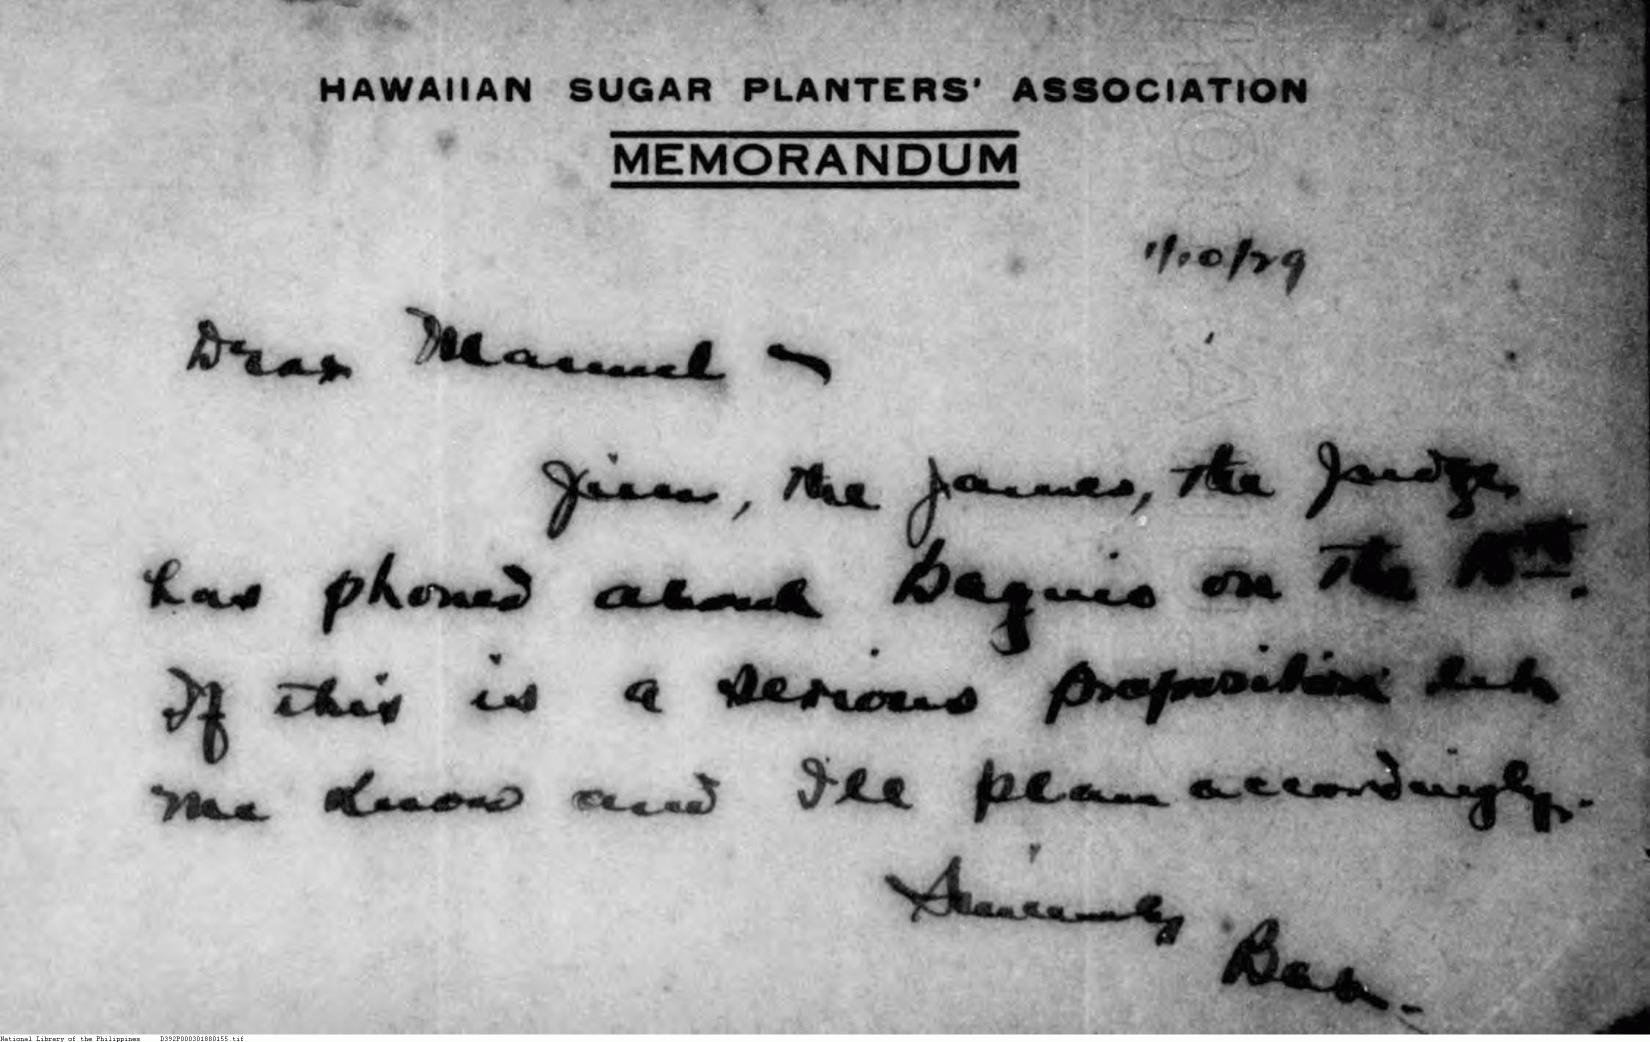 HAWAIIAN SUGAR PLANTERS' ASSOCIATION
MEMORANDUM
1/10/29
Dear Manuel –
Jim, the James, the Judge,
has phoned about Baguio on the 15th.
If this is a serious proposition let
me know and I'll plan accordingly.
Sincerely
National Library of the Philippines D392P000301880155.tif